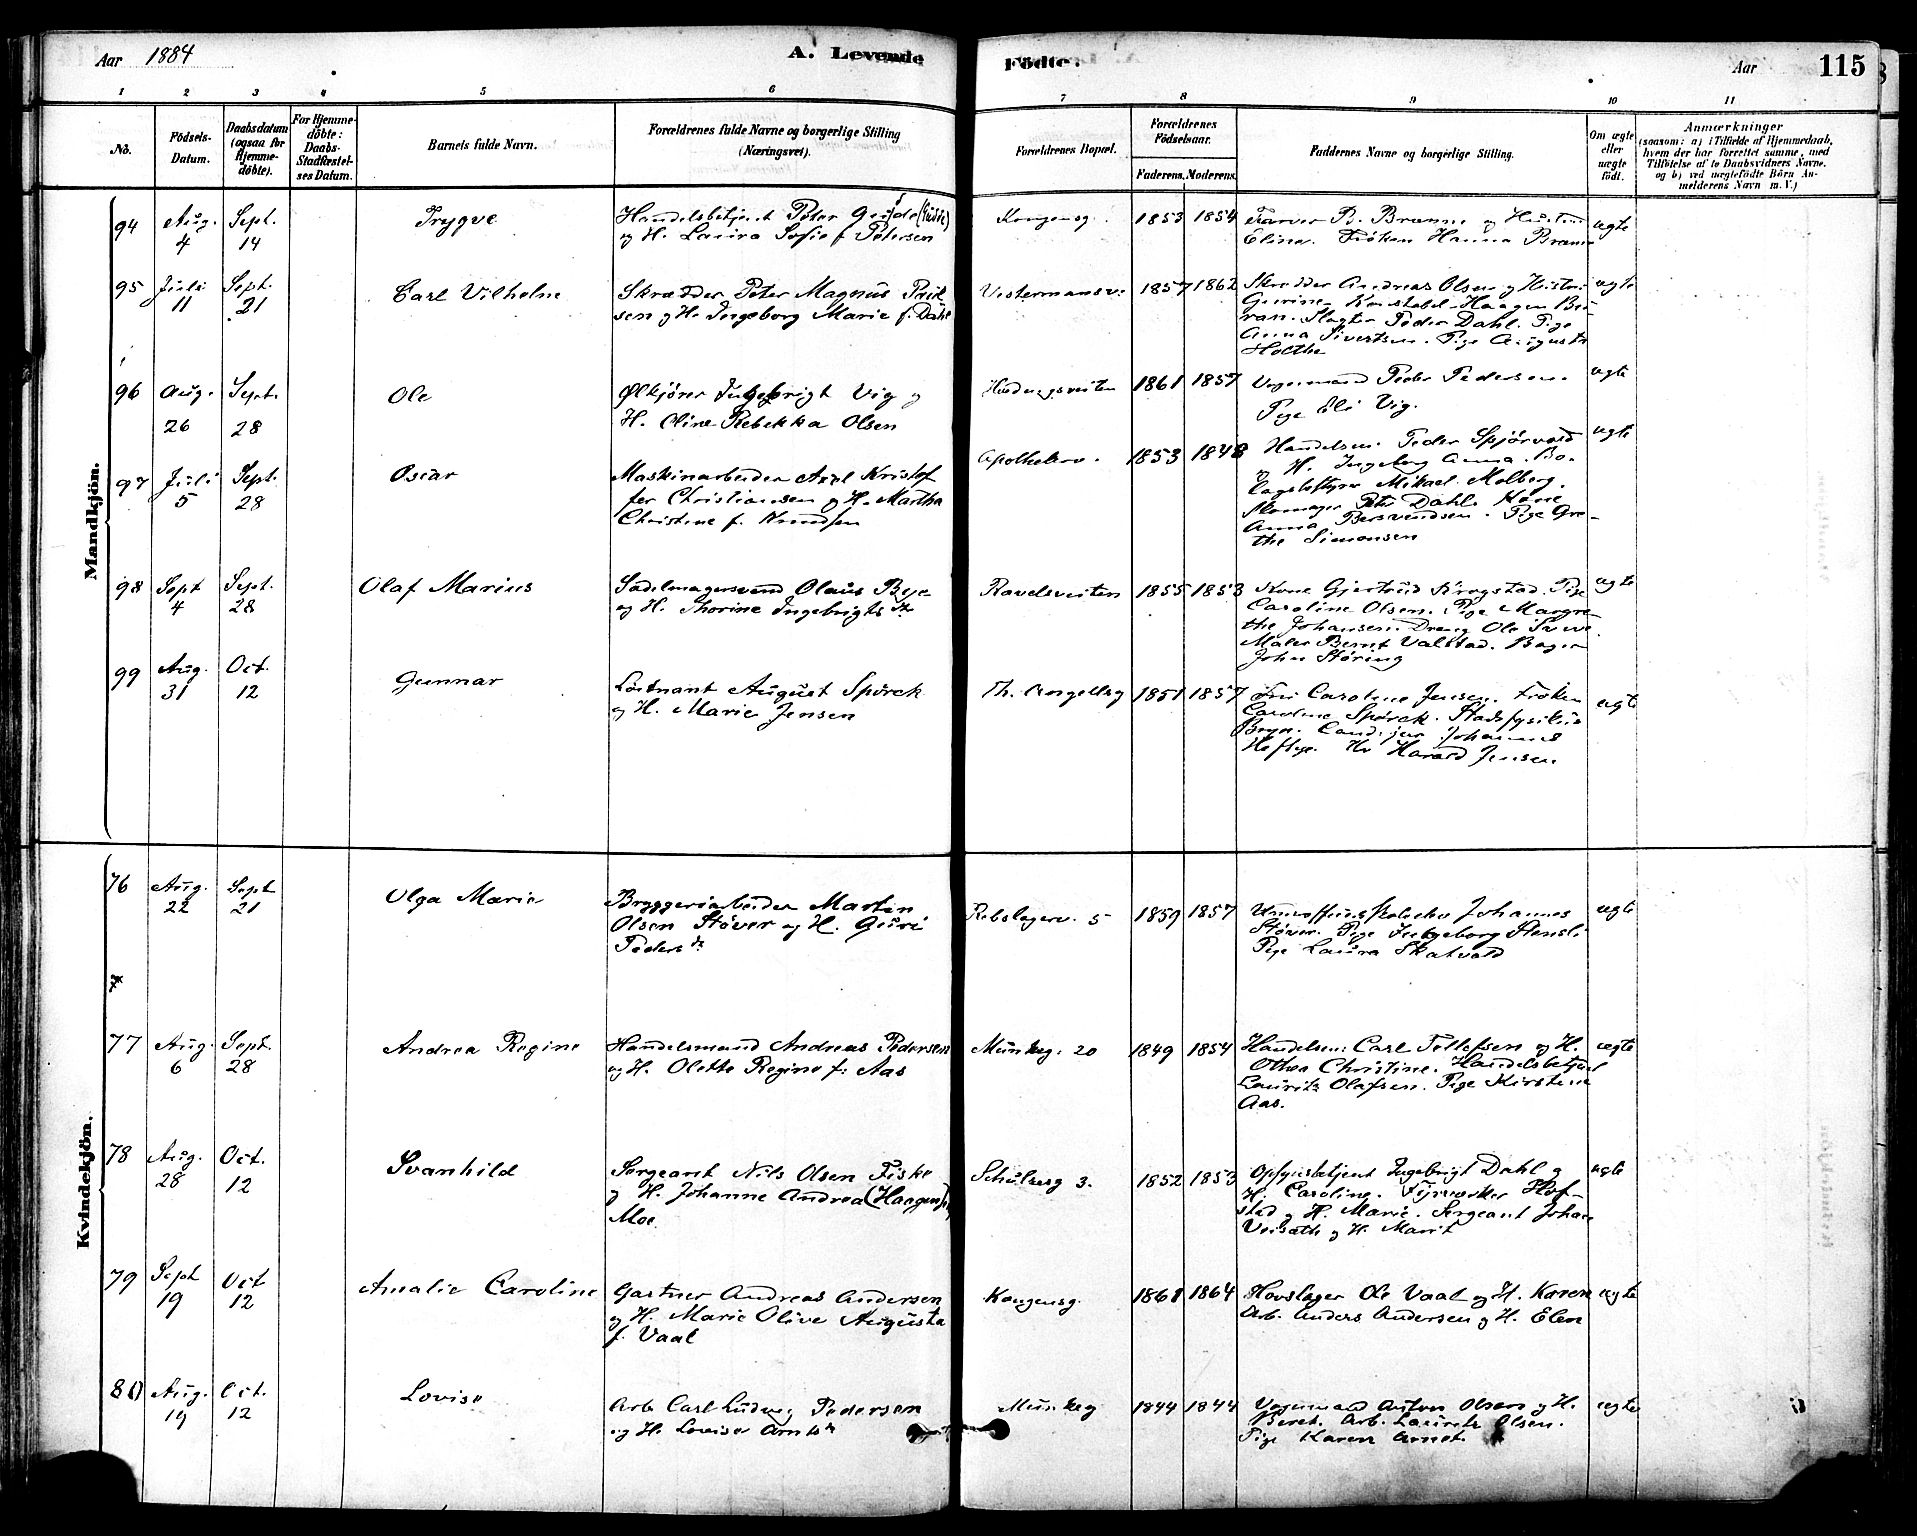 Aar 1884
A. Levende
Födte.
Aar 115
1 2 3 4 5 6 7 8 9 10 11
No.
Födsels-
Datum.
Daabsdatum
(ogsaa for
Hjemme-
døbte).
For Hjemme-
døbte:
Daabs-
Stadfæstel-
ses Datum.
Barnets fulde Navn.
Forældrenes fulde Navne og borgerlige Stilling
(Næringsvei).
Forældrenes Bopæl.
Forældrenes
Födselsaar.
Faderens. Moderens.
Faddernes Navne og borgerlige Stilling.
Om ægte
eller
uægte
födt.
Anmærkninger
(saasom: a) i Tilfælde af Hjemmedaab,
hvem der har forrettet samme, med
Tilföielse af to Daabsvidners Navne.
og b) ved uægtefödte Börn An-
melderens Navn m. V.)
Mandkjön.
94 Aug. 4 Sept. 14
Trygve
Handelsbetjent Peter
og H. Laura Sofie f. Petersen
Kongensg.
1853 1854
Farver B.
Eline. Frøken Hanna
ægte
95 Juli 11 Sept. 21
Carl Vilhelm
Skrædder Peter Magnus
sen og H. Ingeborg Marie f. Dahl
1857 1862
Skrædder Andreas Olsen og Hustru
Gurine. Konstabel Haagen
Slagter Peder Dahl. Pige
Anna Sivertsen. Pige Augusta
Holthe
ægte
96 Aug. 26 Sept. 28
Ole
Ølkjører Ingebrigt Vig og
H. Oline Rebekka Olsen
1861 1857
Vognmand Peder Pedersen.
Pige Eli Vig.
ægte
97 Juli 5 Sept. 28
Oscar
Maskinarbeider Axel Kristof
fer Christiansen og H. Martha
Christine f. Knudsen
Apothekerv.
1853 1848
Handelsm. Peder Spjørvold
og H. Ingeborg Anna. Bo-
Mikael Molberg.
Skomager Peter Dahl. Kone
Anna Bersvendsen. Pige Gre-
the Simonsen
ægte
98 Sept 4 Sept. 28
Olaf Marius
Sadelmagersvend Olaus Bye
og H. Thorine Ingebrigtsdr
Ravelsveiten
1855 1853
Kone Gjertrud Krogstad. Pige
Caroline Olsen. Pige Margre-
the Johansen. Dreng Ole
Maler Bernt Valstad. Bager
John Støring
ægte
99 Aug. 31 Oct. 12
Gunnar
Løitnant August Spørck
og H. Marie Jensen
Th. Angellsg
1851 1857
Fru Caroline Jensen. Frøken
Caroline Spørck. Stadsfysikus
Bryn. Cand. jur Johannes
Heftye. Hr Harald Jensen
ægte
Kvindekjön.
76 Aug. 22 Sept 21
Olga Marie
Bryggeriarbeider Martin
Olsen Støver og H. Guri
Pedersdr
Rebslagerv. 5
1859 1857
Underofficersskoleelev Johannes
Støver. Pige Ingeborg Stensli
Pige Laura Skatvold
ægte
77 Aug. 6 Sept. 28
Andrea Regine
Handelsmand Andreas Pedersen
og H. Olette Regine f. Aas
Munkeg. 20
1849 1854
Handelsm. Carl Tellefsen og H.
Othea Christine. Handelsbetjent
Lauritz Olafsen. Pige Kirstine
Aas.
ægte
78 Aug. 28 Oct. 12
Svanhild
Sergeant Nils Olsen Fiske
og H. Johanne Andrea (Haagens)
Moe.
Schulzesg 3.
1852 1853
Opsynsbetjent Ingebrigt Dahl og
H. Caroline. Fyrværker Hof-
stad og H. Marie. Sergeant Johan
Veisath og H. Marit
ægte
79 Sept 19 Oct 12
Amalie Caroline
Gartner Andreas Andersen
og H. Marie Olive Augusta
f. Vaal
Kongensg.
1861 1864
Hovslager Ole Vaal og H. Karen
Arb. Anders Andersen og H. Elen
ægte
80 Aug. 19 Oct. 12
Lovise
Arb. Carl Ludvig Pedersen
og H. Lovise Arntsdr
Munkeg
1844 1844
Vognmand Anton Olsen og H.
Beret. Arb. Lauritz Olsen.
Pige Karen Arnet.
ægte